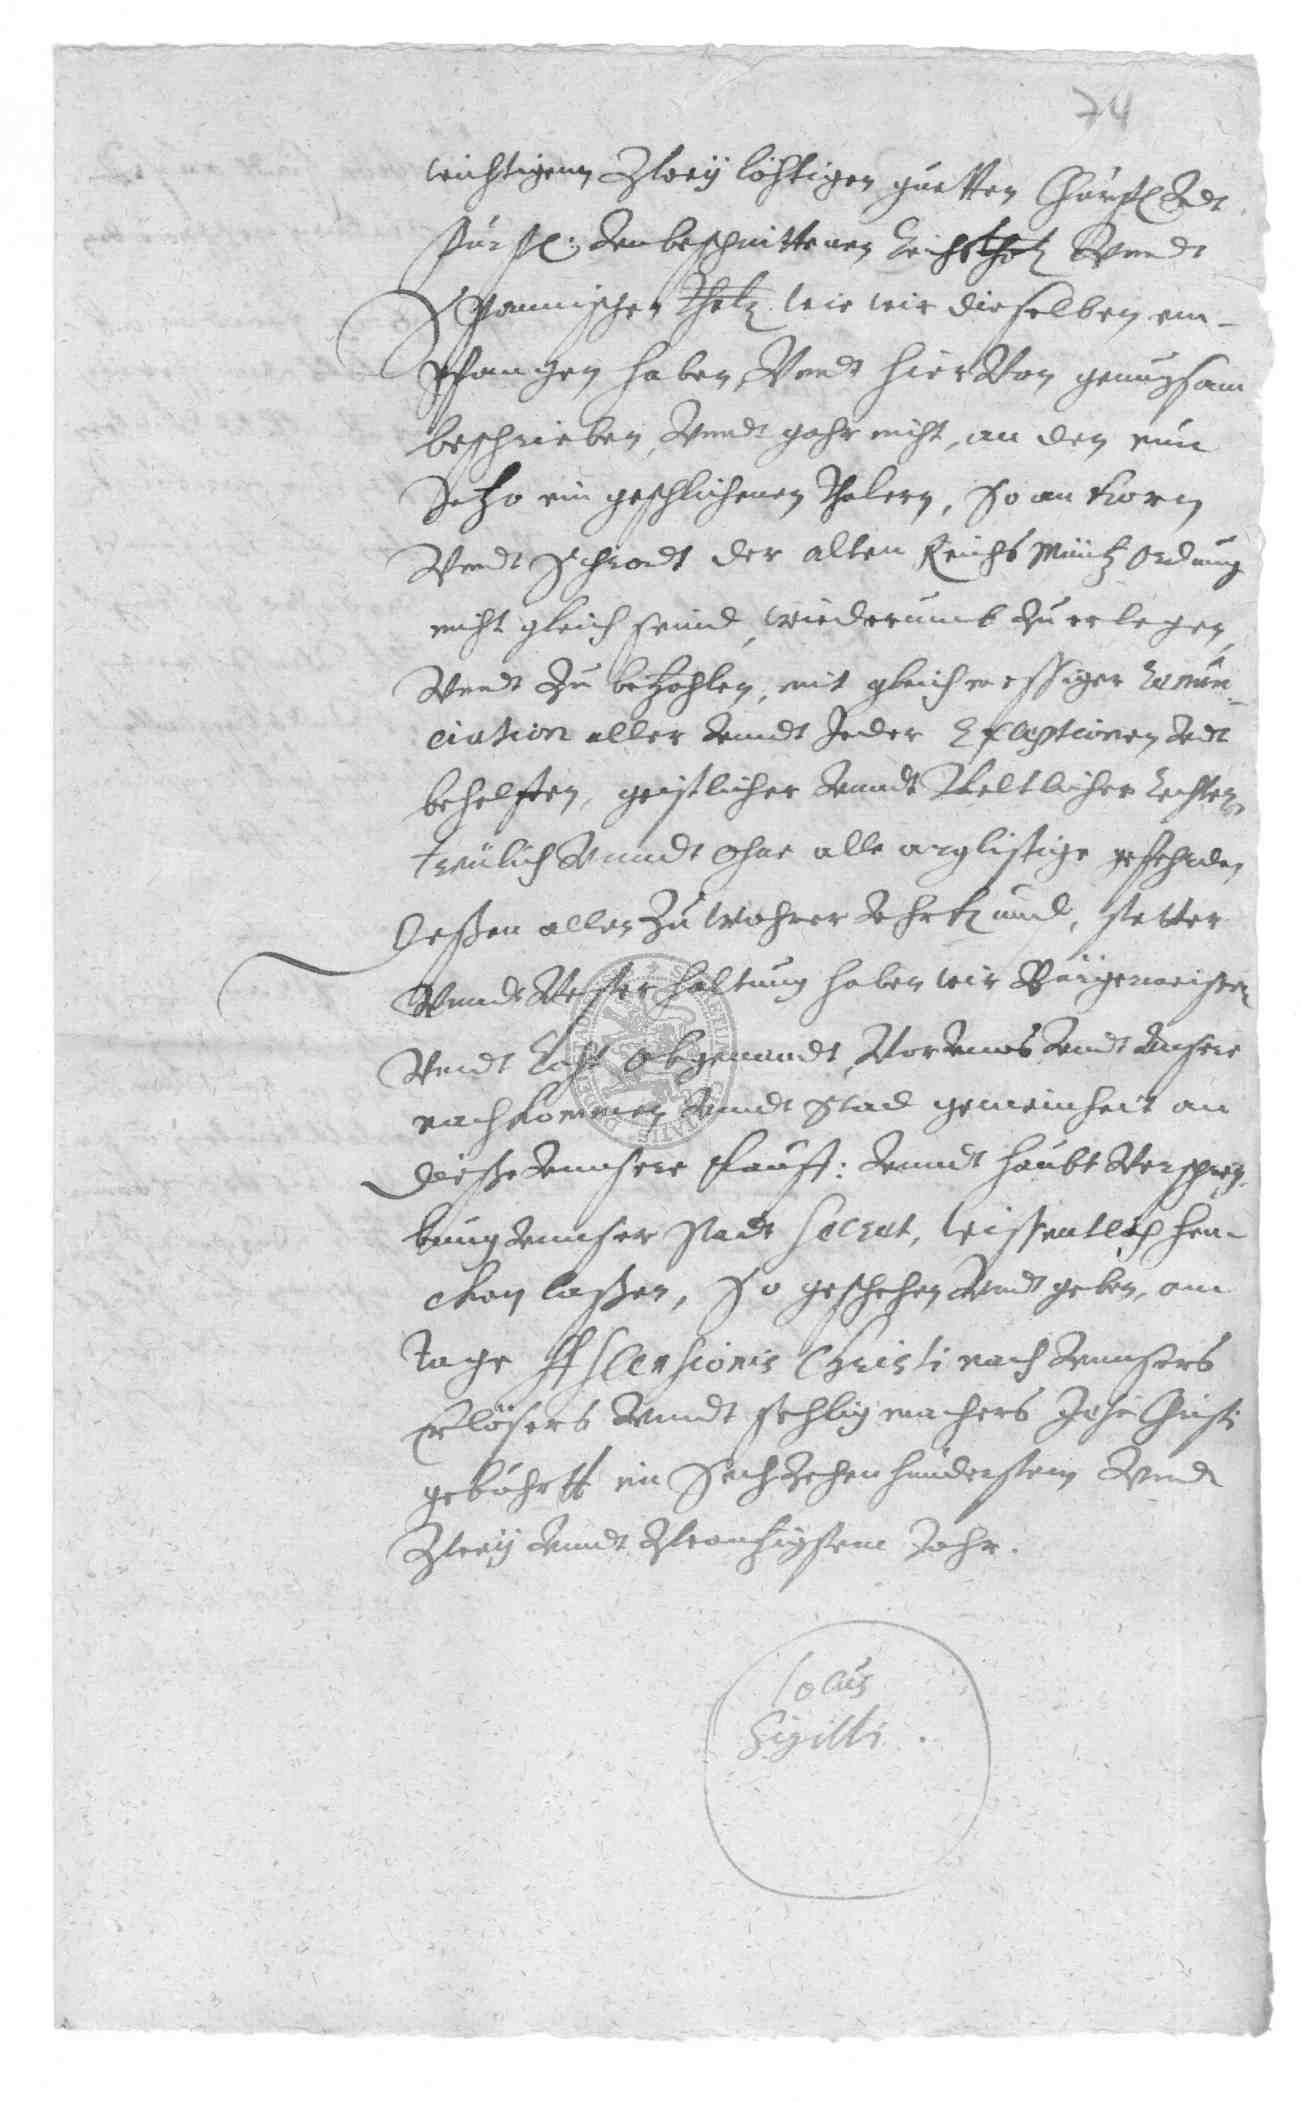 74
wichtigenn Zweÿ löhtigen guetten Churfl Vndt
fürstl: Vnbeschnittenen Reichsthlr Vnndt
Spannischen Thlr wie wir dieselben em-
pfangen haben, Vnndt hier Von genugsam
beschrieben, Vnndt gahr nicht, an den nun
Jetzo ein geschlichenen Thalern, so an Korn
Vnndt Schrodt der alten Reichs Müntz ordnung
nicht gleich seind, wiederumb Zu erlegen,
Vnndt Zu betzahlen, mit gleichmessiger renun-
ciation aller Vnndt Jeder Exceptionen Vndt
behelffen, geistlicher Vnndt Weltlicher Rechten
treulich Vnndt ohne alle arglistige gefehrde,
Dessen allen Zu wahrer Vhrkund, stetter
Vnndt Vester haltung haben wir Bürgemeister
Vnndt Raht obgenandt, Vor Vnns Vndt Vnsere
nachkommen Vnndt Stad gemeinheit an
diesse Vnnsere Kauff: Vnndt haubt Verschrei-
bung Vnnser Stadt Secret, wissentlich hen-
cken lassen, So geschehen Vndt geben, am
tage Ascensionis Christi nach Vnnsers
Erlösers Vnndt sehligmachers Jesu Christi
gebuhrtt im Sechzehenhunderstem Vnd
Zweÿ Vnndt Zwantzigstem Jahr.
locus
Sigilli.